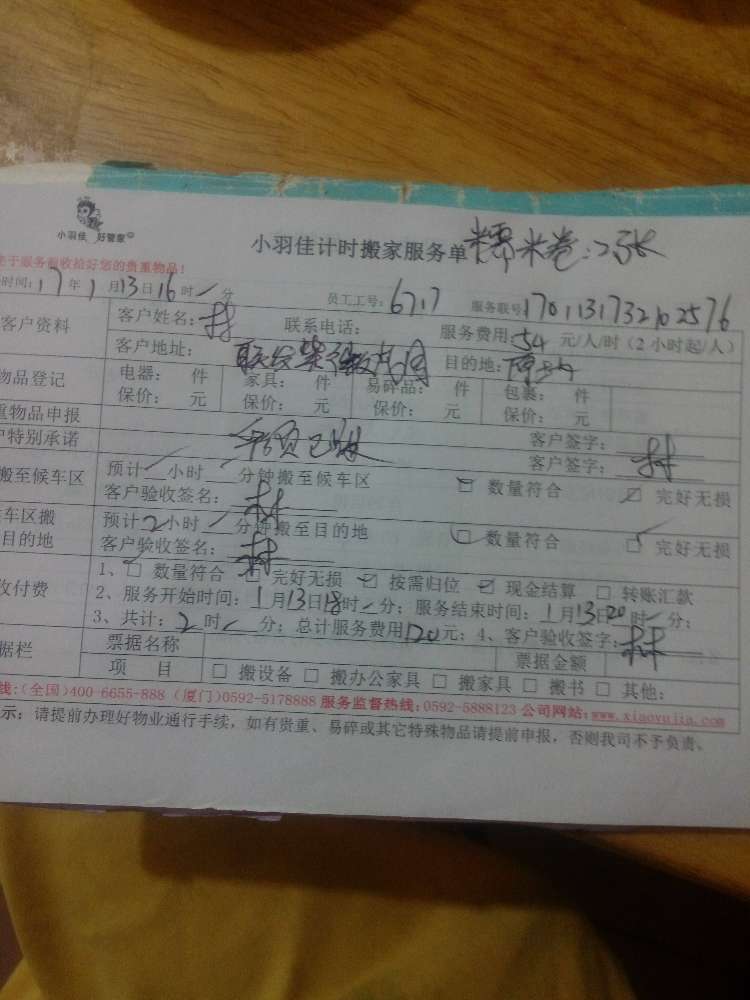 小羽佳 好管家
小羽佳计时搬家服务单 糯米卷:2张
先于服务验收拾好您的贵重物品!
时间:17年1月13日16时 分 员工工号:6717 服务联号1701131732102576
客户资料 客户姓名: 林 联系电话: 服务费用:54 元/人/时(2小时起/人)
客户地址: 目的地:
物品登记 电器: 件 家具: 件 易碎品: 件 包裹: 件
保价: 元 保价: 元 保价: 元 保价: 元
重物品申报 客户签字:
户特别承诺 客户签字: 林
搬至候车区 预计 小时 分钟搬至候车区 □ 数量符合 ☑ 完好无损
客户验收签名: 林
车区搬 预计2小时 分钟搬至目的地 □ 数量符合 □ 完好无损
目的地 客户验收签名: 林
收付费 1、□ 数量符合 □ 完好无损 ☑ 按需归位 ☑ 现金结算 □ 转账汇款
2、服务开始时间:1月13日18时 分;服务结束时间:1月13日20时 分;
3、共计:2时 分;总计服务费用120元;4、客户验收签字: 林
据栏 票据名称 票据金额
项 目 □ 搬设备 □ 搬办公家具 □ 搬家具 □ 搬书 □ 其他:
线:(全国)400-6655-888 (厦门)0592-5178888 服务监督热线:0592-5888123 公司网站:www.xiaoyujia.com
示:请提前办理好物业通行手续,如有贵重、易碎或其它特殊物品请提前申报,否则我司不予负责。